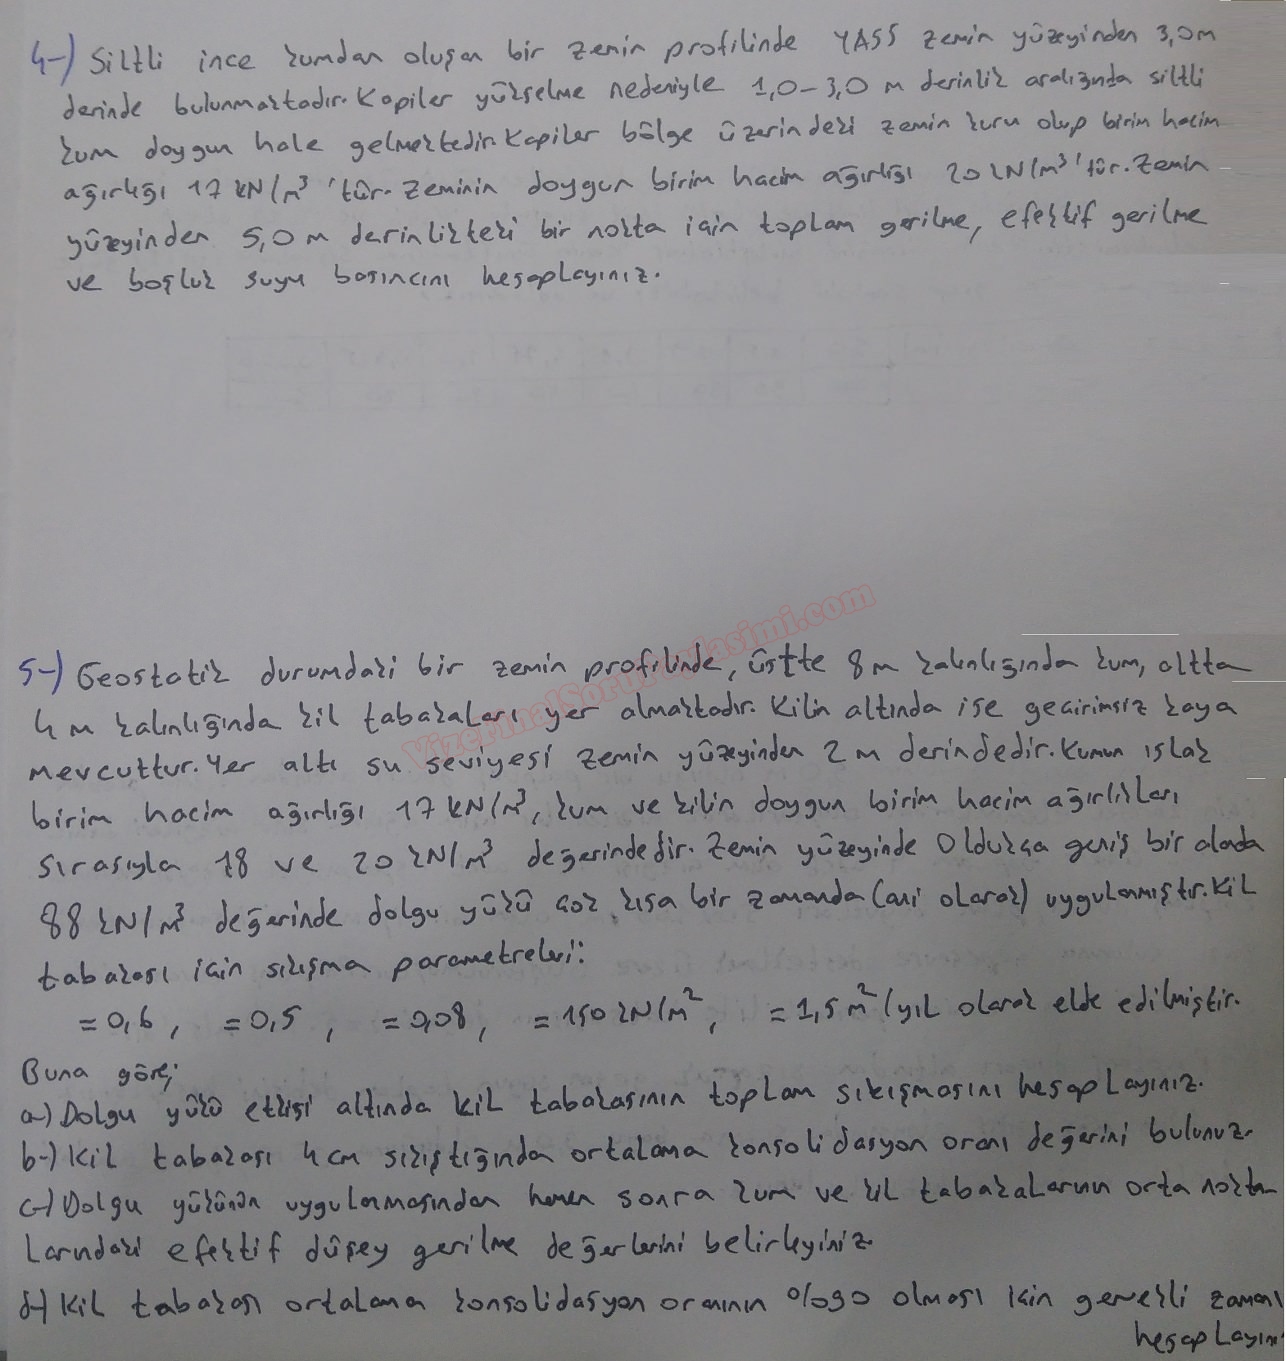 4-) Siltli ince kumdan oluşan bir zemin profilinde YASS zemin yüzeyinden 3,0m
derinde bulunmaktadır. Kapiler yükselme nedeniyle 1,0-3,0 m derinlik aralığında siltli
kum doygun hale gelmektedir. Kapiler bölge üzerindeki zemin kuru olup birim hacim
ağırlığı 17 kN/m³ 'tür. Zeminin doygun birim hacim ağırlığı 20 kN/m³ 'tür. Zemin
yüzeyinden 5,0 m derinlikteki bir nokta için toplam gerilme, efektif gerilme
ve boşluk suyu basıncını hesaplayınız.
VizeFinalSoruPaylasimi.com
5-) Geostatik durumdaki bir zemin profilinde, üstte 8 m kalınlığında kum, altta
4 m kalınlığında kil tabakaları yer almaktadır. Kilin altında ise geçirimsiz kaya
mevcuttur. Yer altı su seviyesi zemin yüzeyinden 2 m derindedir. Kumun ıslak
birim hacim ağırlığı 17 kN/m³, kum ve kilin doygun birim hacim ağırlıkları
sırasıyla 18 ve 20 kN/m³ değerindedir. Zemin yüzeyinde Oldukça geniş bir alanda
88 kN/m³ değerinde dolgu yükü çok kısa bir zamanda (ani olarak) uygulanmıştır. Kil
tabakası için sıkışma parametreleri:
=0,6, =0,5, =0,08, =150 kN/m², =1,5 m²/yıl olarak elde edilmiştir.
Buna göre;
a-) Dolgu yükü etkisi altında kil tabakasının toplam sıkışmasını hesaplayınız.
b-) Kil tabakası 4 cm sıkıştığında ortalama konsolidasyon oranı değerini bulunuz.
c-) Dolgu yükünün uygulanmasından hemen sonra kum ve kil tabakalarının orta nokta-
larındaki efektif düşey gerilme değerlerini belirleyiniz.
d-) Kil tabakası ortalama konsolidasyon oranının %90 olması için gerekli zamanı
hesaplayın